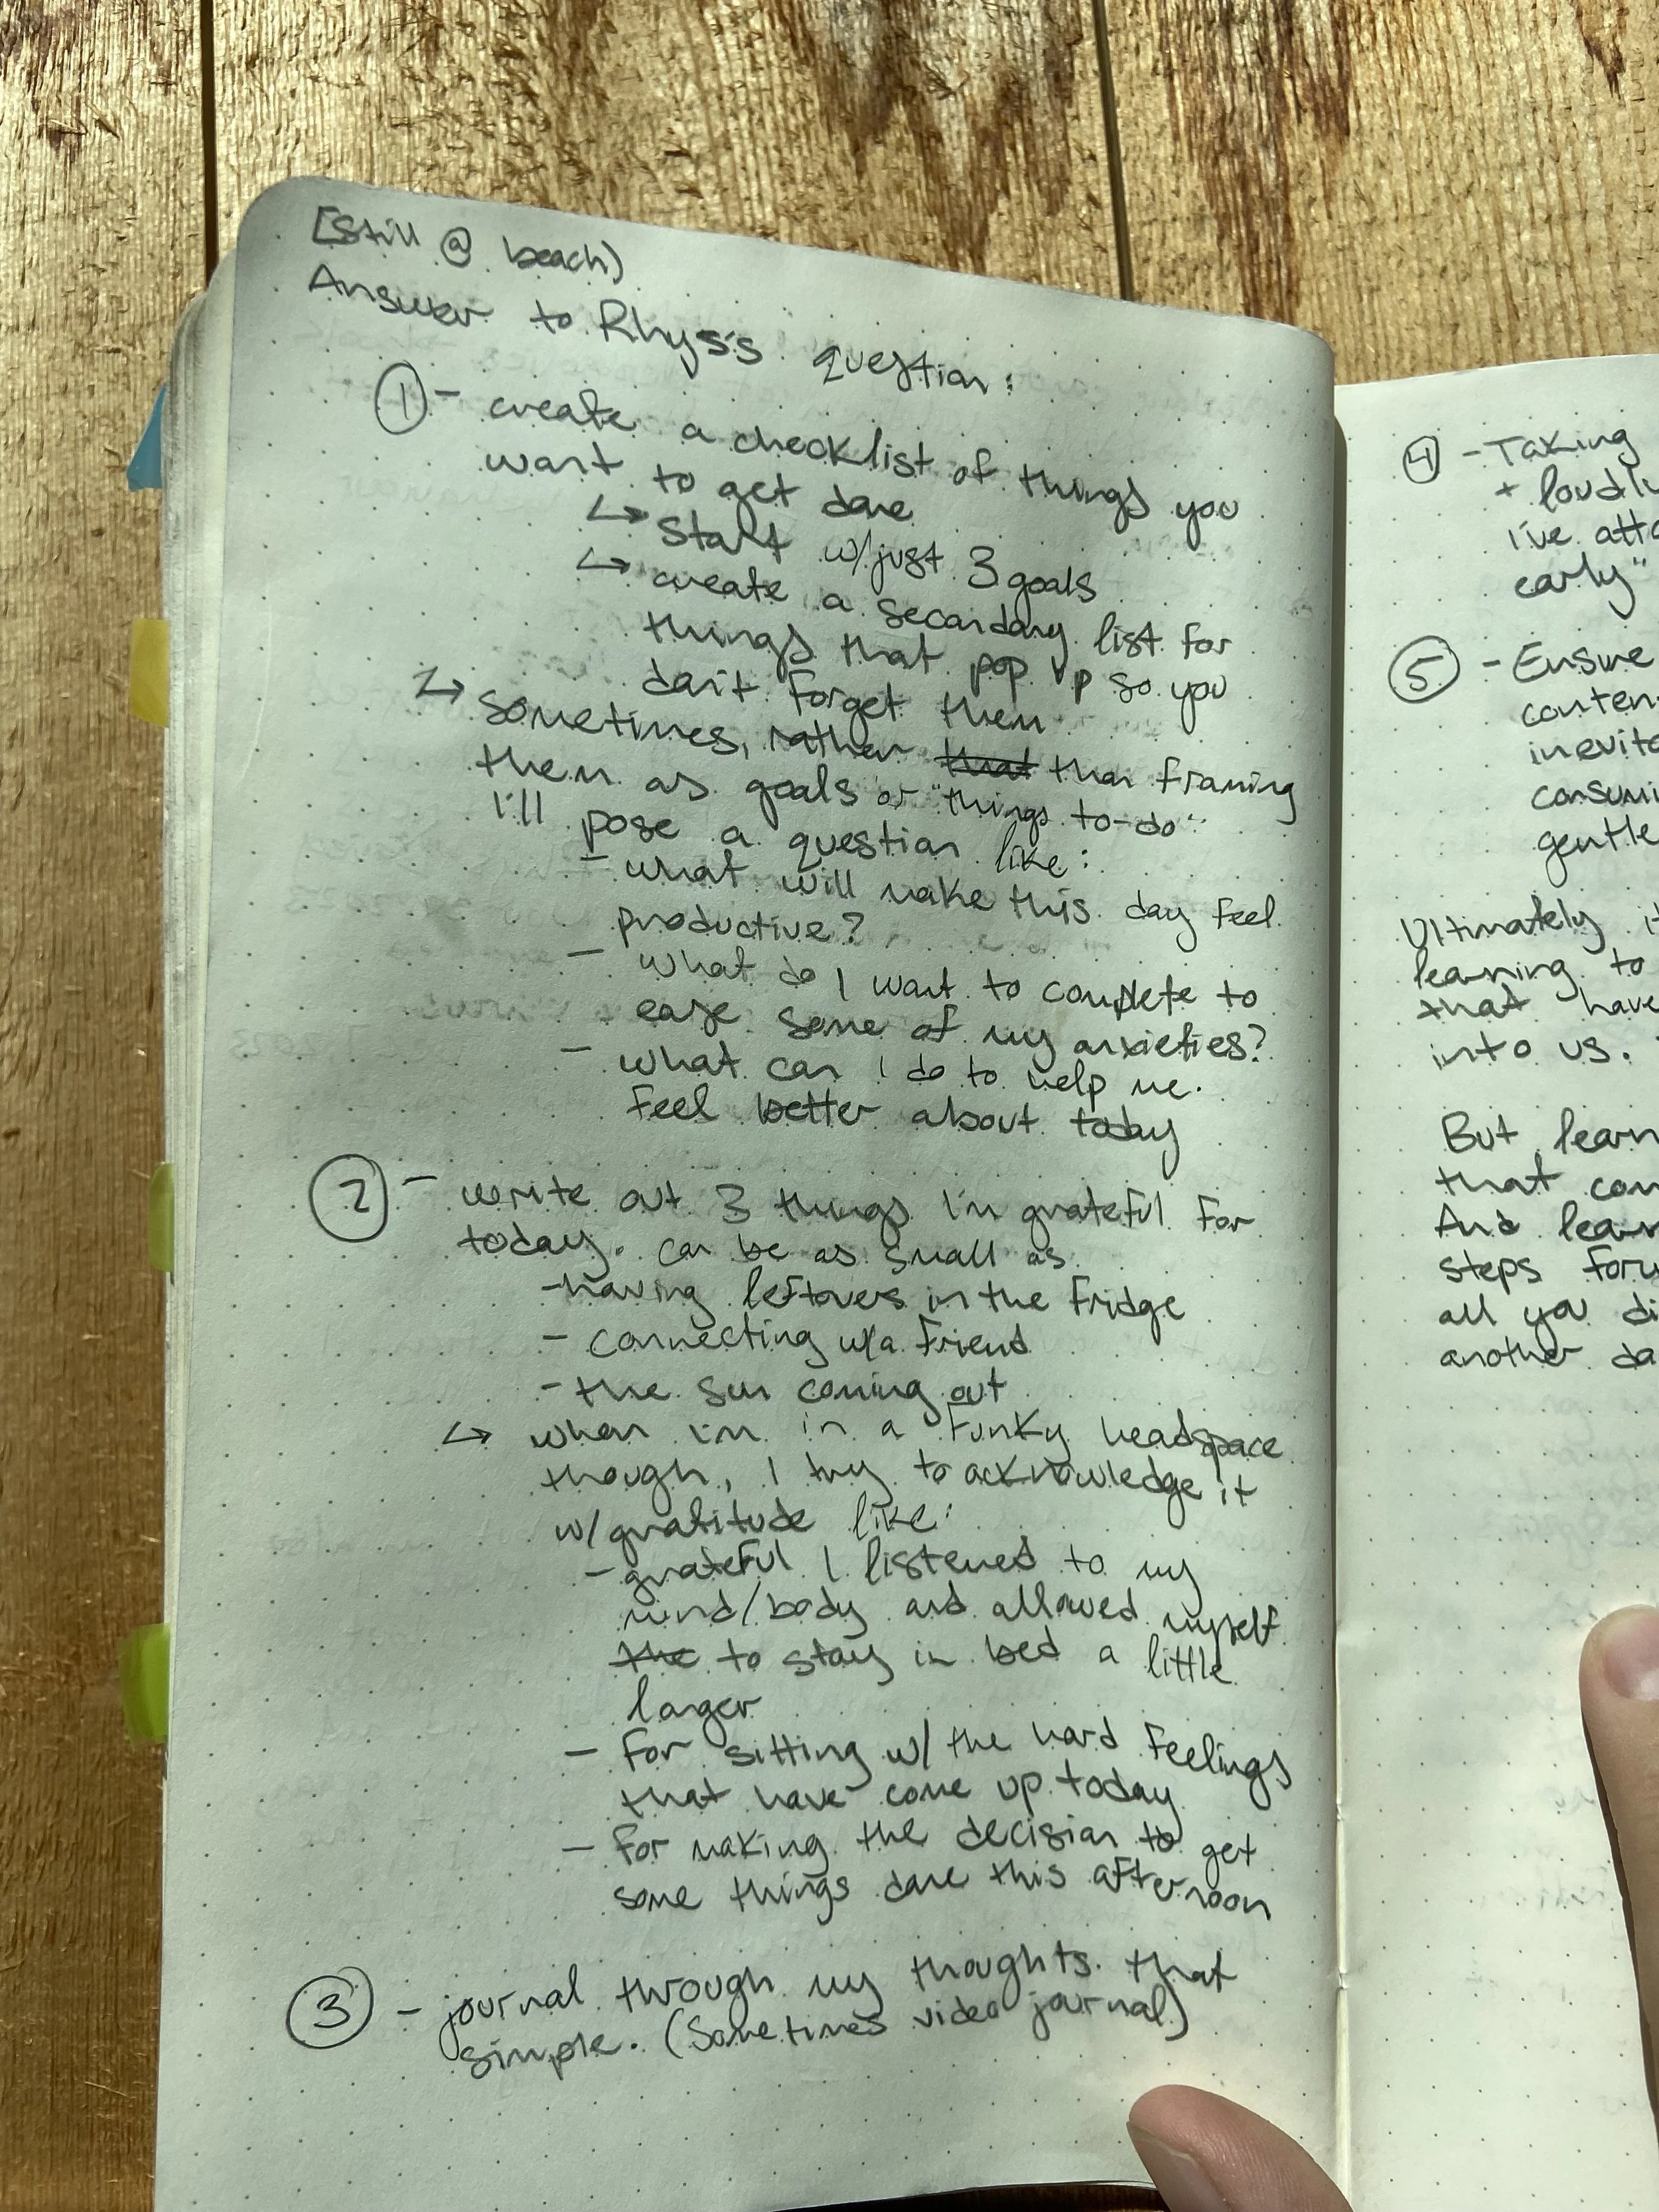 [Still @ beach)
Answer to Rhys's question:
① - create a checklist of things you
want to get done
↳ Start w/just 3 goals
↳ create a secondary list for
things that pop up so you
don't forget them
↳ sometimes, rather that than framing
them as goals or "things to-do"
I'll pose a question like:
- what will make this day feel
productive?
- what do I want to complete to
ease some of my anxieties?
- what can I do to help me
feel better about today
② - write out 3 things I'm grateful for
today. can be as small as
- having leftovers in the fridge
- connecting w/a friend
- the sun coming out
↳ when i'm in a funky headspace
though, I try to acknowledge it
w/gratitude like:
- grateful I listened to my
mind/body and allowed myself
the to stay in bed a little
longer
- for sitting w/ the hard feelings
that have come up today
- for making the decision to get
some things done this afternoon
③ - journal through my thoughts. that
simple. (sometimes video journal)
④ - Taking
+ loudly
i've atta
early"
⑤ - Ensure
conten
inevita
consumi
gentle
Ultimately it
learning to
that have
into us.
But learn
that com
And learn
steps forw
all you di
another da